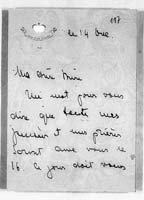 117
le 14 Dec.
Ma chère
Un mot pour vous
dire que toute mes
pensées et mes prières
seront avec vous le
16. Ce jour doit vous